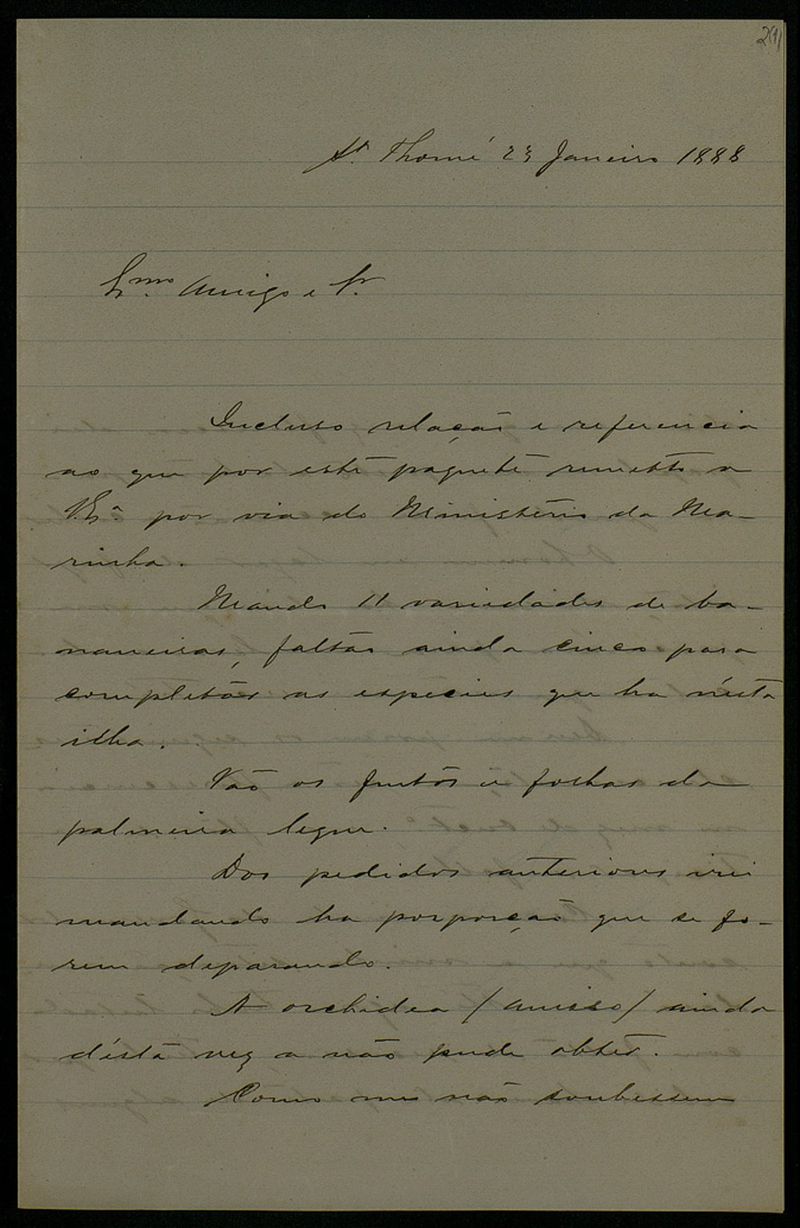 St. Thomé 23 Janeiro 1888
Exmo. Amigo e Sr.
Incluso relação e referencia
ao que por este paquete remetto a
V.Ex.ª por via do Ministério da Ma-
rinha.
Mando 11 variedades de ba-
naneiras, faltão ainda cinco para
completár as espécies que ha n'ésta
ilha.
Vão os frutos e folhas da
palmeira
Dos pedidos anteriores irei
mandando ha porporção que se fo-
rem deparando.
A orchidea ainda
d'ésta vez a não pude obtêr.
Como me não soubessem